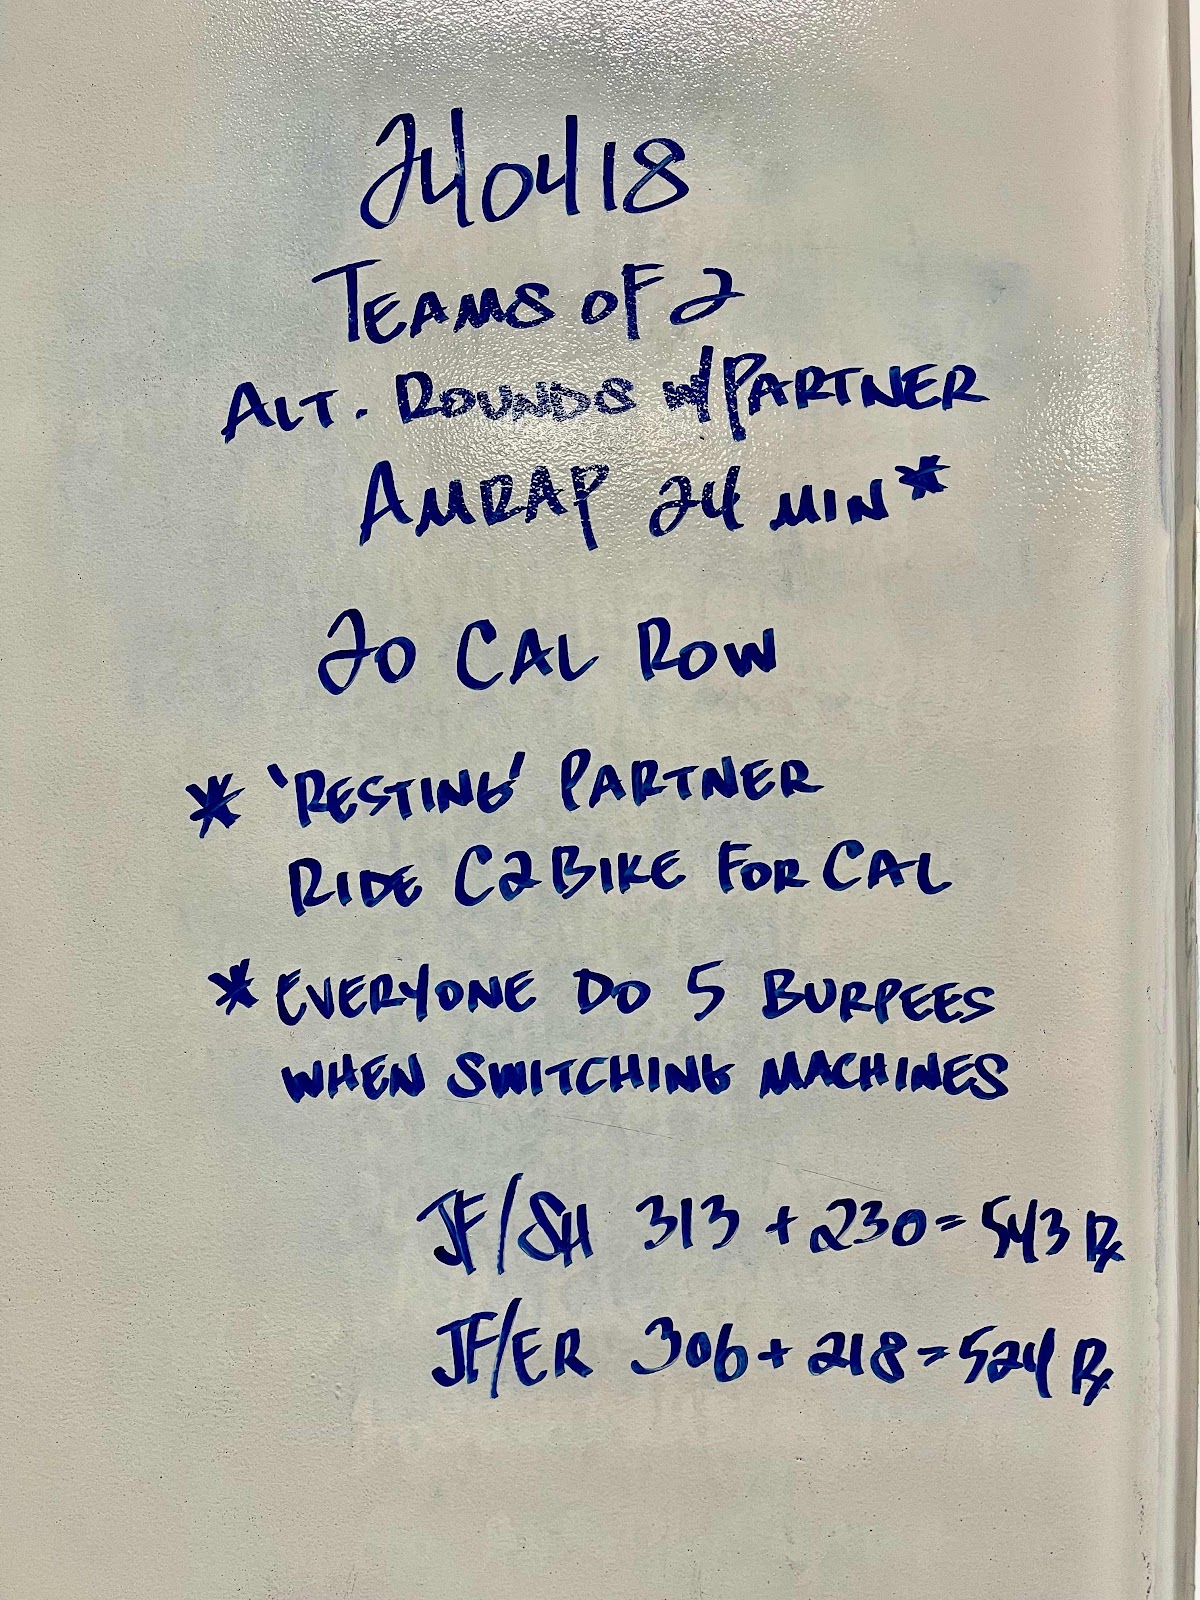 240418
TEAMS OF 2
ALT. ROUNDS W/PARTNER
AMRAP 24 MIN*
20 CAL ROW
* 'RESTING' PARTNER
RIDE C2BIKE FOR CAL
* EVERYONE DO 5 BURPEES
WHEN SWITCHING MACHINES
JF/SH 313 + 230 = 543 Rx
JF/ER 306 + 218 = 524 Rx